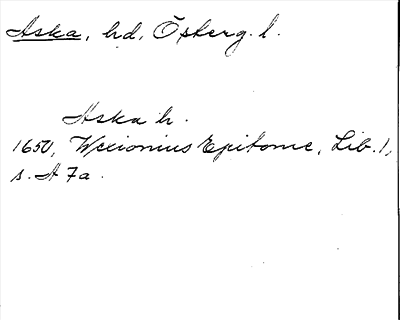 Aska, hd, Österg. l.
Aska h.
1650, Wexionius Epitome, Lib. 1,
s. A 7a.